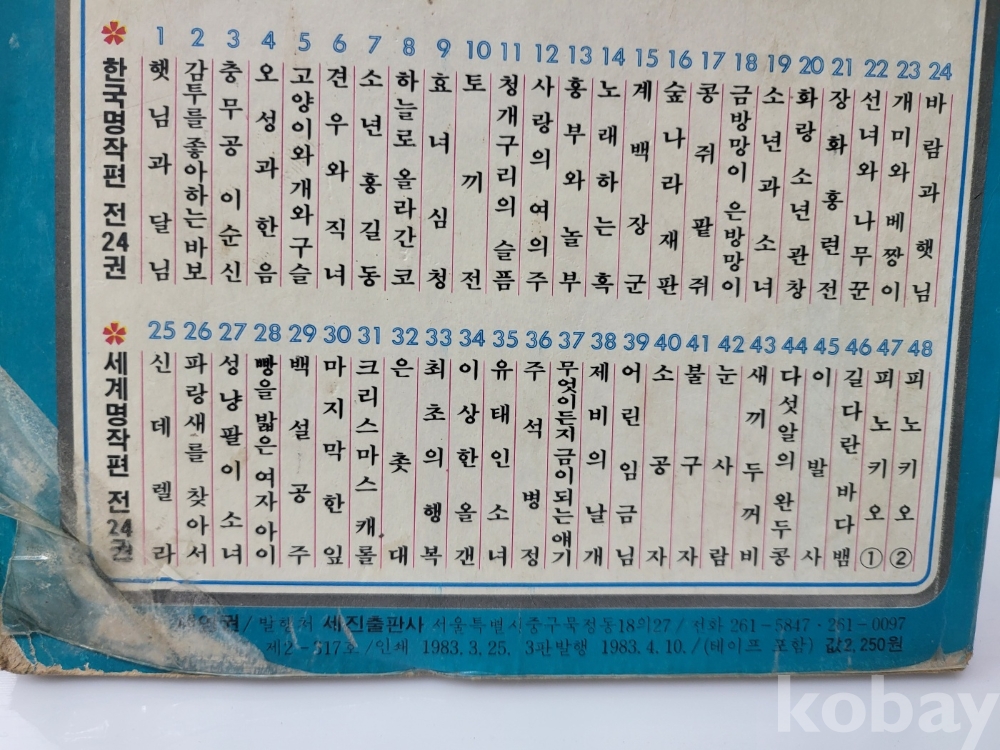 한국명작편 전24권
1 햇님과 달님
2 감투를 좋아하는 바보
3 충무공 이순신
4 오성과 한음
5 고양이와 개와 구슬
6 견우와 직녀
7 소년 홍길동
8 하늘로 올라간 코
9 효녀 심청
10 토끼전
11 청개구리의 슬픔
12 사랑의 여의주
13 흥부와 놀부
14 노래하는 혹
15 계백장군
16 숲나라 재판
17 콩쥐 팥쥐
18 금방망이 은방망이
19 소년과 소녀
20 화랑 소년 관창
21 장화 홍련전
22 선녀와 나무꾼
23 개미와 베짱이
24 바람과 햇님
세계명작편 전24권
25 신데렐라
26 파랑새를 찾아서
27 성냥팔이 소녀
28 빵을 밟은 여자 아이
29 백설공주
30 마지막 한 잎
31 크리스마스 캐롤
32 은촛대
33 최초의 행복
34 이상한 올갠
35 유태인 소녀
36 주석 병정
37 무엇이든지 금이 되는 얘기
38 제비의 날개
39 어린 임금님
40 소공자
41 불구자
42 눈사람
43 새끼 두꺼비
44 다섯 알의 완두콩
45 이발사
46 길다란 바다뱀
47 피노키오 ①
48 피노키오 ②
권/발행처 세진출판사 서울특별시중구묵정동18의27/전화 261-5847·261-0097
제2-317호/인쇄 1983.3.25. 3판발행 1983.4.10./(테이프 포함) 값2,250원
kobay